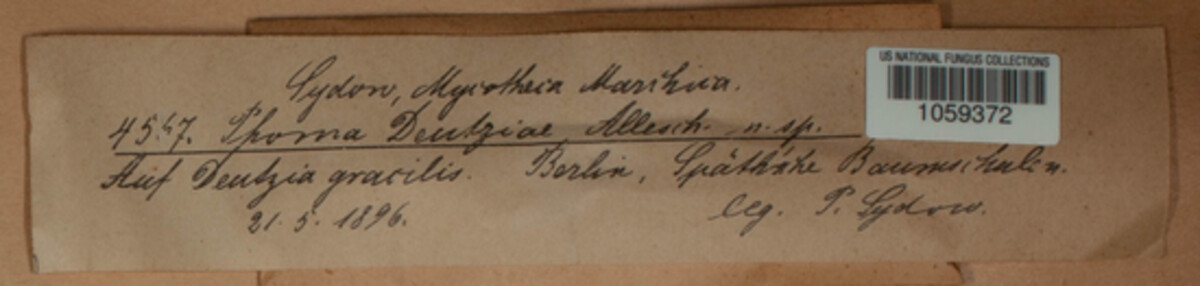 Sydow, Mycotheca Marchica.
Phoma Deutziae Allesch. n. sp.
Auf Deutzia gracilis. Berlin, Späth'sche Baumschulen.
21. 5. 1896. leg. P. Sydow.
US NATIONAL FUNGUS COLLECTIONS
1059372